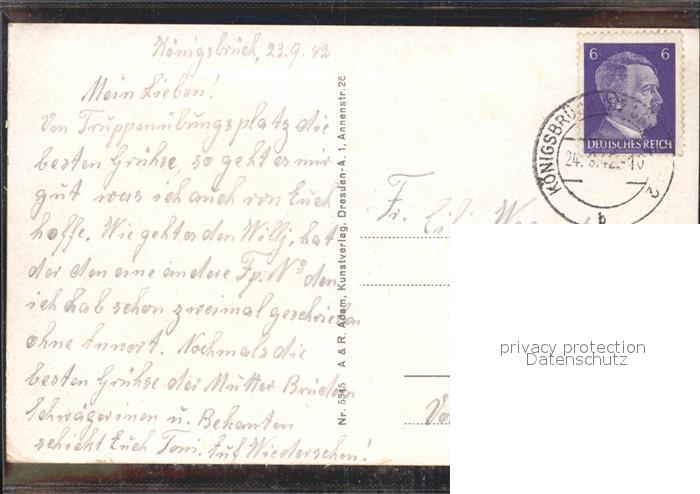 Königsbrück, 23.9.42
Mein Lieben!
Von Truppenübungsplatz die
besten Grühse, so geht es mir
gut was ich auch von Euch
hoffe. Wie geht es den Willj, hat
der den eine andere Fp. No den
ich hab schon zweimal geschrieben
ohne Antwort. Nochmals die
besten Grühse der Mutter Brüdern
Schwägerinen u. Bekanten
schickt Euch Toni. Auf Wiedersehen!
Nr. 5545 A & R. Adam, Kunstverlag, Dresden-A. 1, Annenstr. 26
6 6
DEUTSCHES REICH
KÖNIGSBRÜCK
24.9.42.-10
b
2
Fr.
privacy protection
Datenschutz